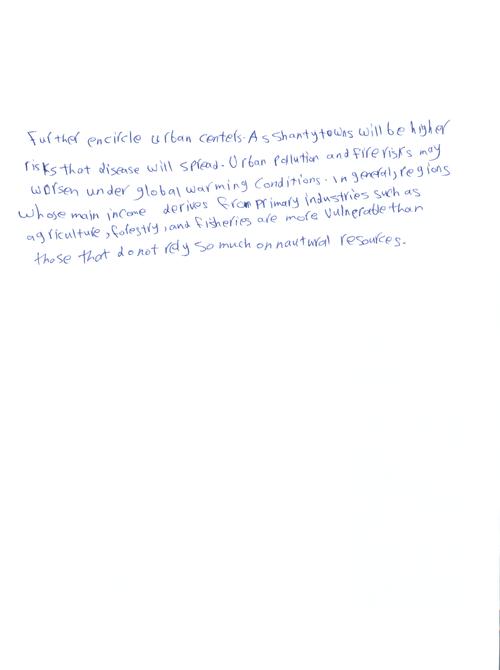 Further encircle urban centers. As shantytowns will be higher
risks that disease will spread. Urban pollution and fire risks may
worsen under global warming conditions. in general, regions
whose main income derives from primary industries such as
agriculture, forestry, and fisheries are more vulnerable than
those that do not rely so much on nautural resources.